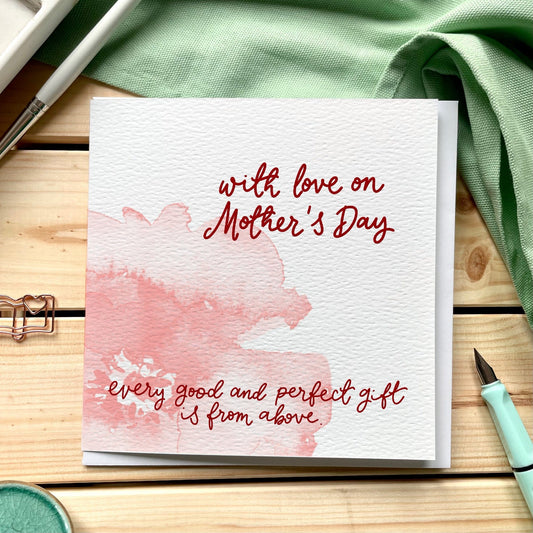 with love on
Mother's Day
every good and perfect gift
is from above.